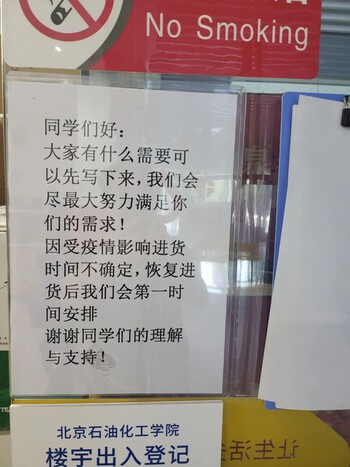 No Smoking
同学们好：
大家有什么需要可
以先写下来，我们会
尽最大努力满足你
们的需求！
因受疫情影响进货
时间不确定，恢复进
货后我们会第一时
间安排
谢谢同学们的理解
与支持！
北京石油化工学院
楼宇出入登记
让生活